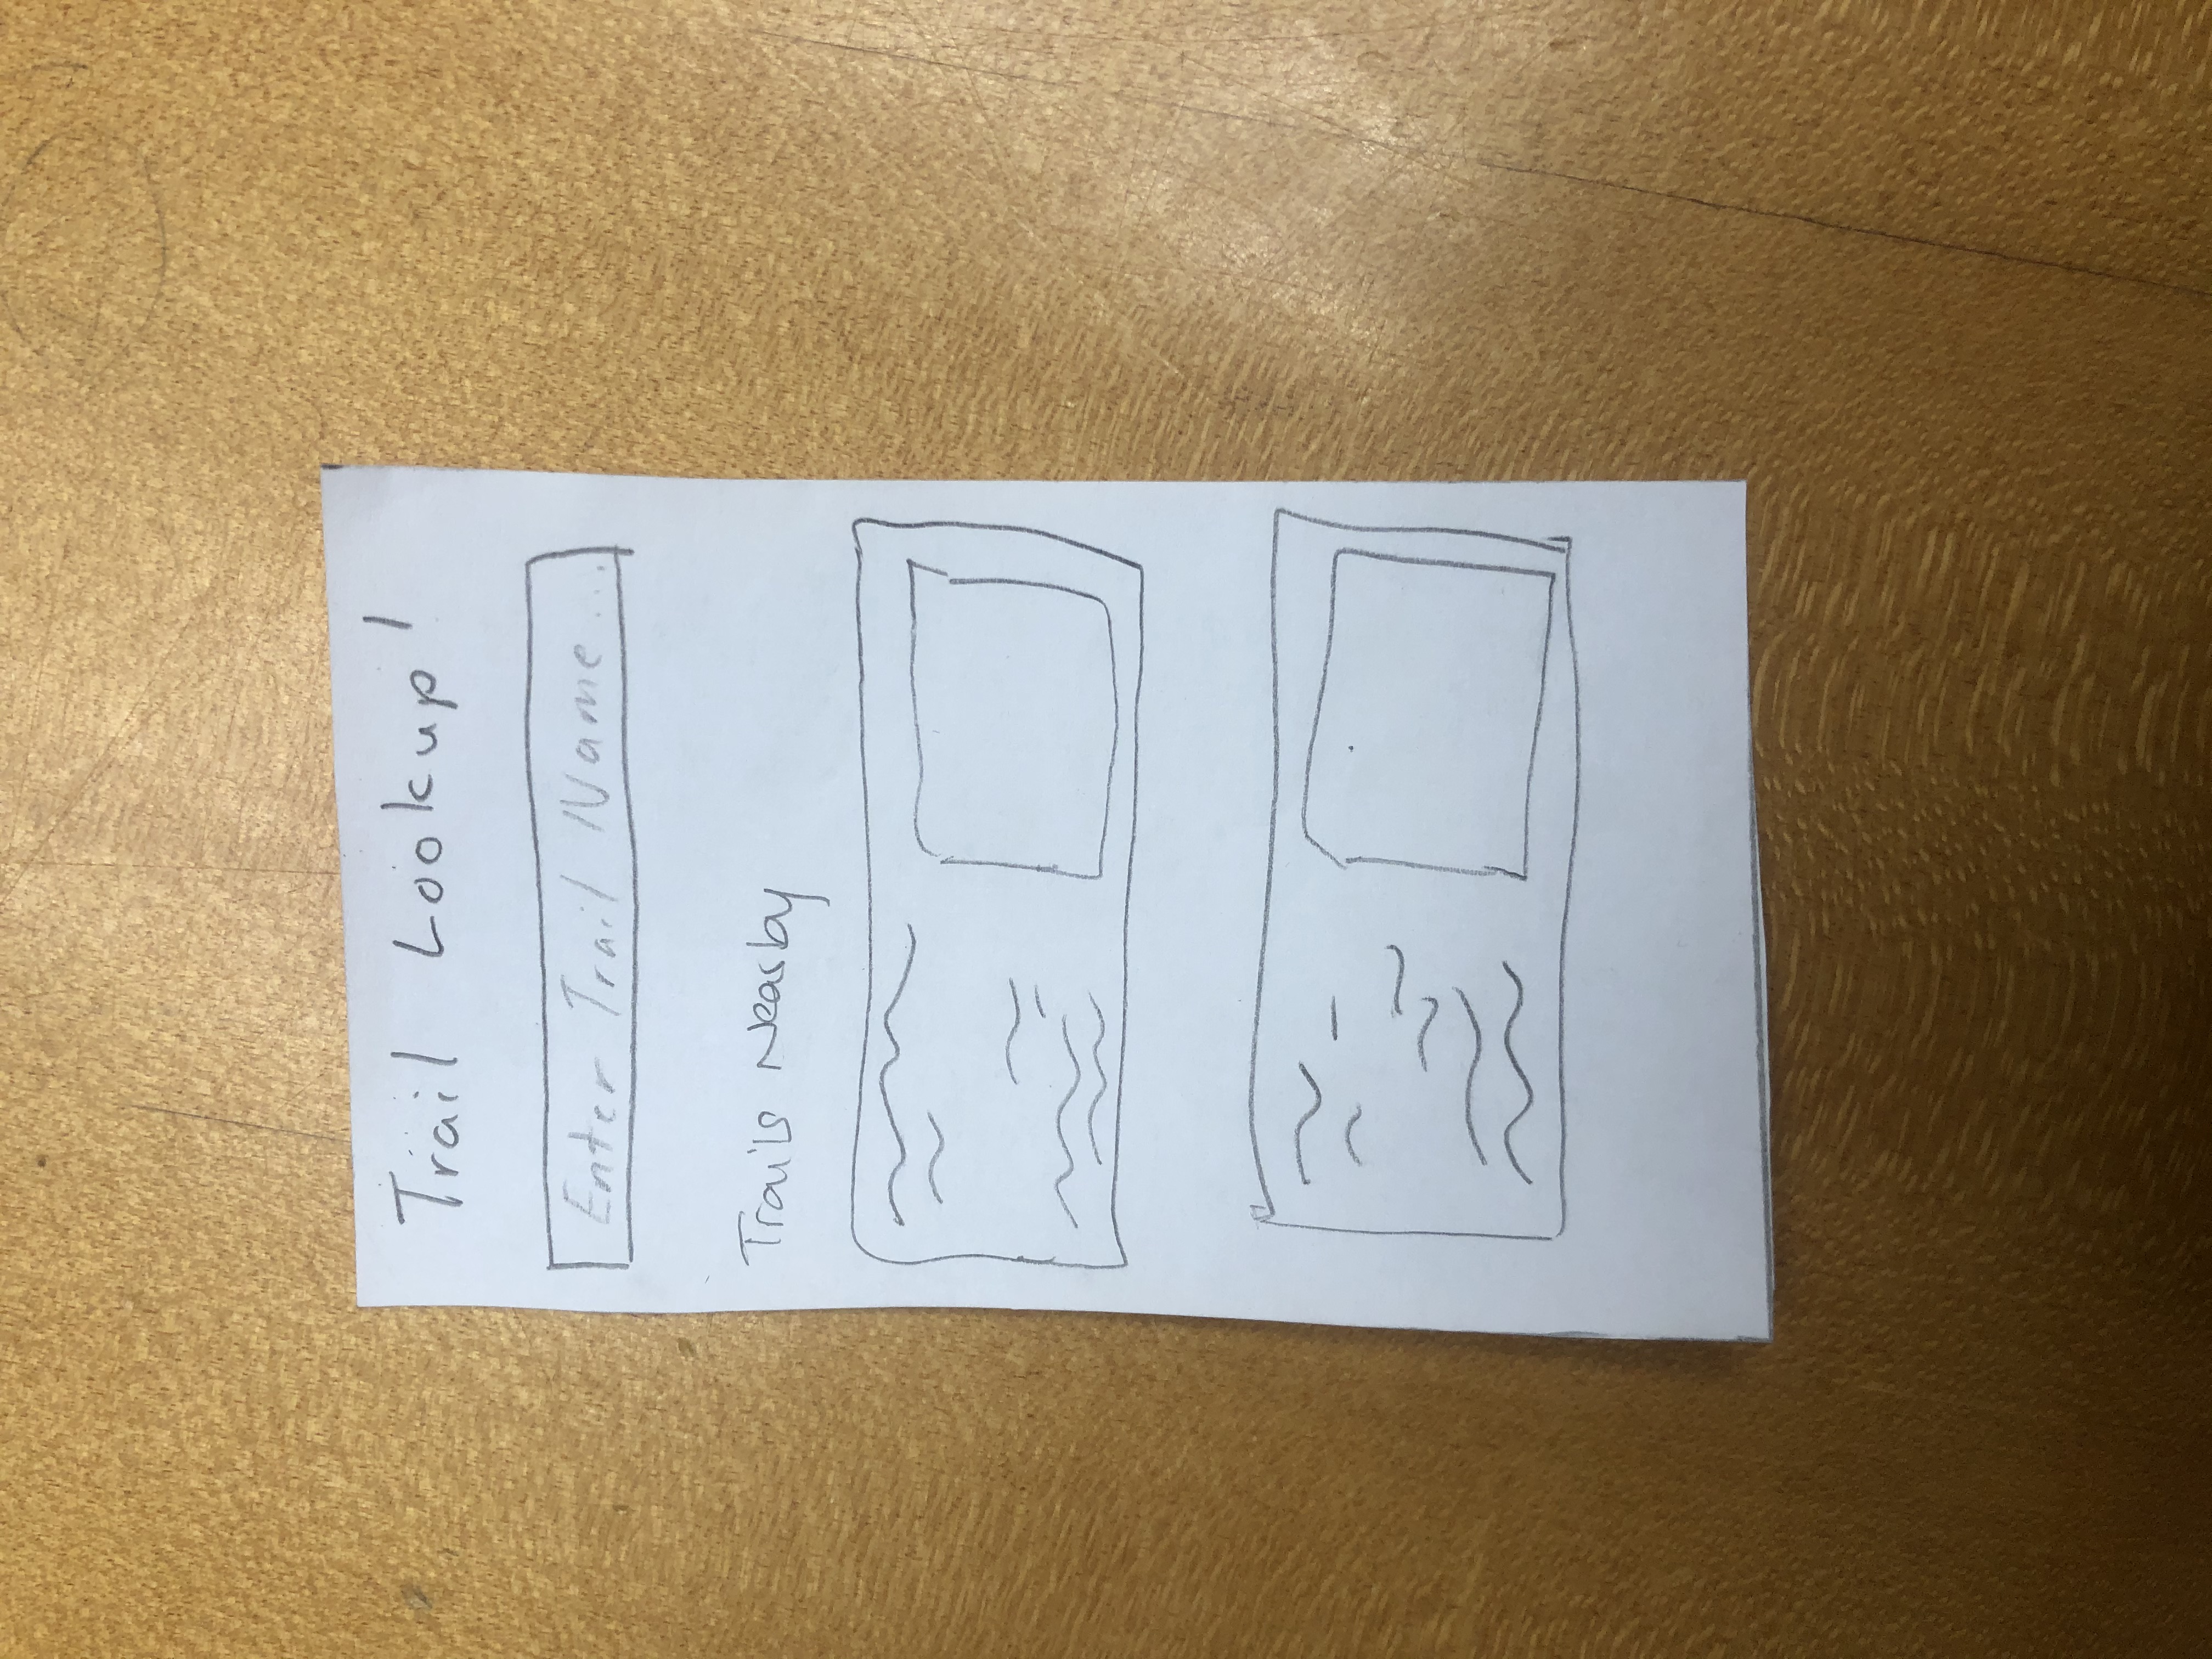 Trail Lookup!
Enter Trail Name...
Trails Nearby